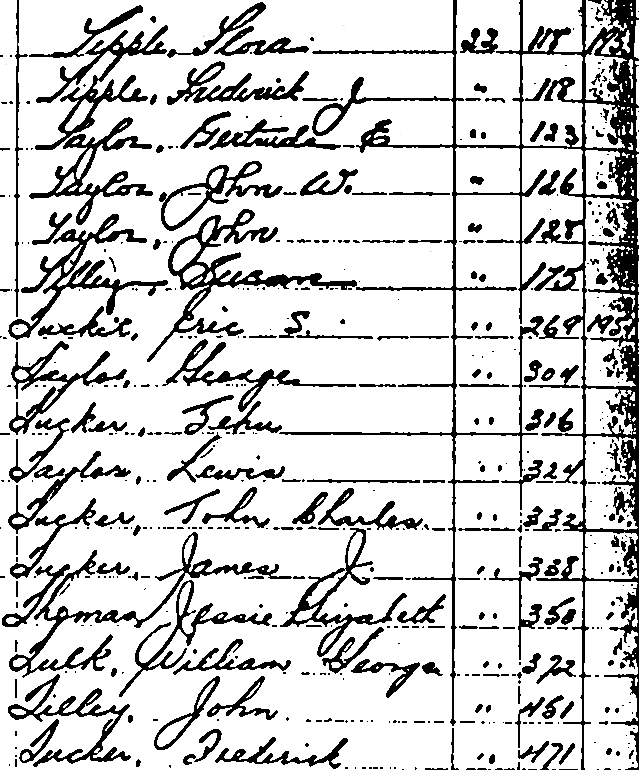 Tipple, Flora. 22 118 195
Tipple, Frederick J " 118 "
Taylor, Gertrude E " 123 "
Taylor, John W. " 126 "
Taylor, John " 128 "
Tilley, Susan " 175 "
Tuckit, Eric S. " 269 1951
Taylor, George " 304 "
Tucker, " 316 "
Taylor, Lewis " 324 "
Tucker, John Charles. " 332 "
Tucker, James J. " 338 "
Thomas, Jessie Elizabeth " 350 "
Tulk, William George " 372 "
Tilley, John " 451 "
Tucker, Frederick " 471 "